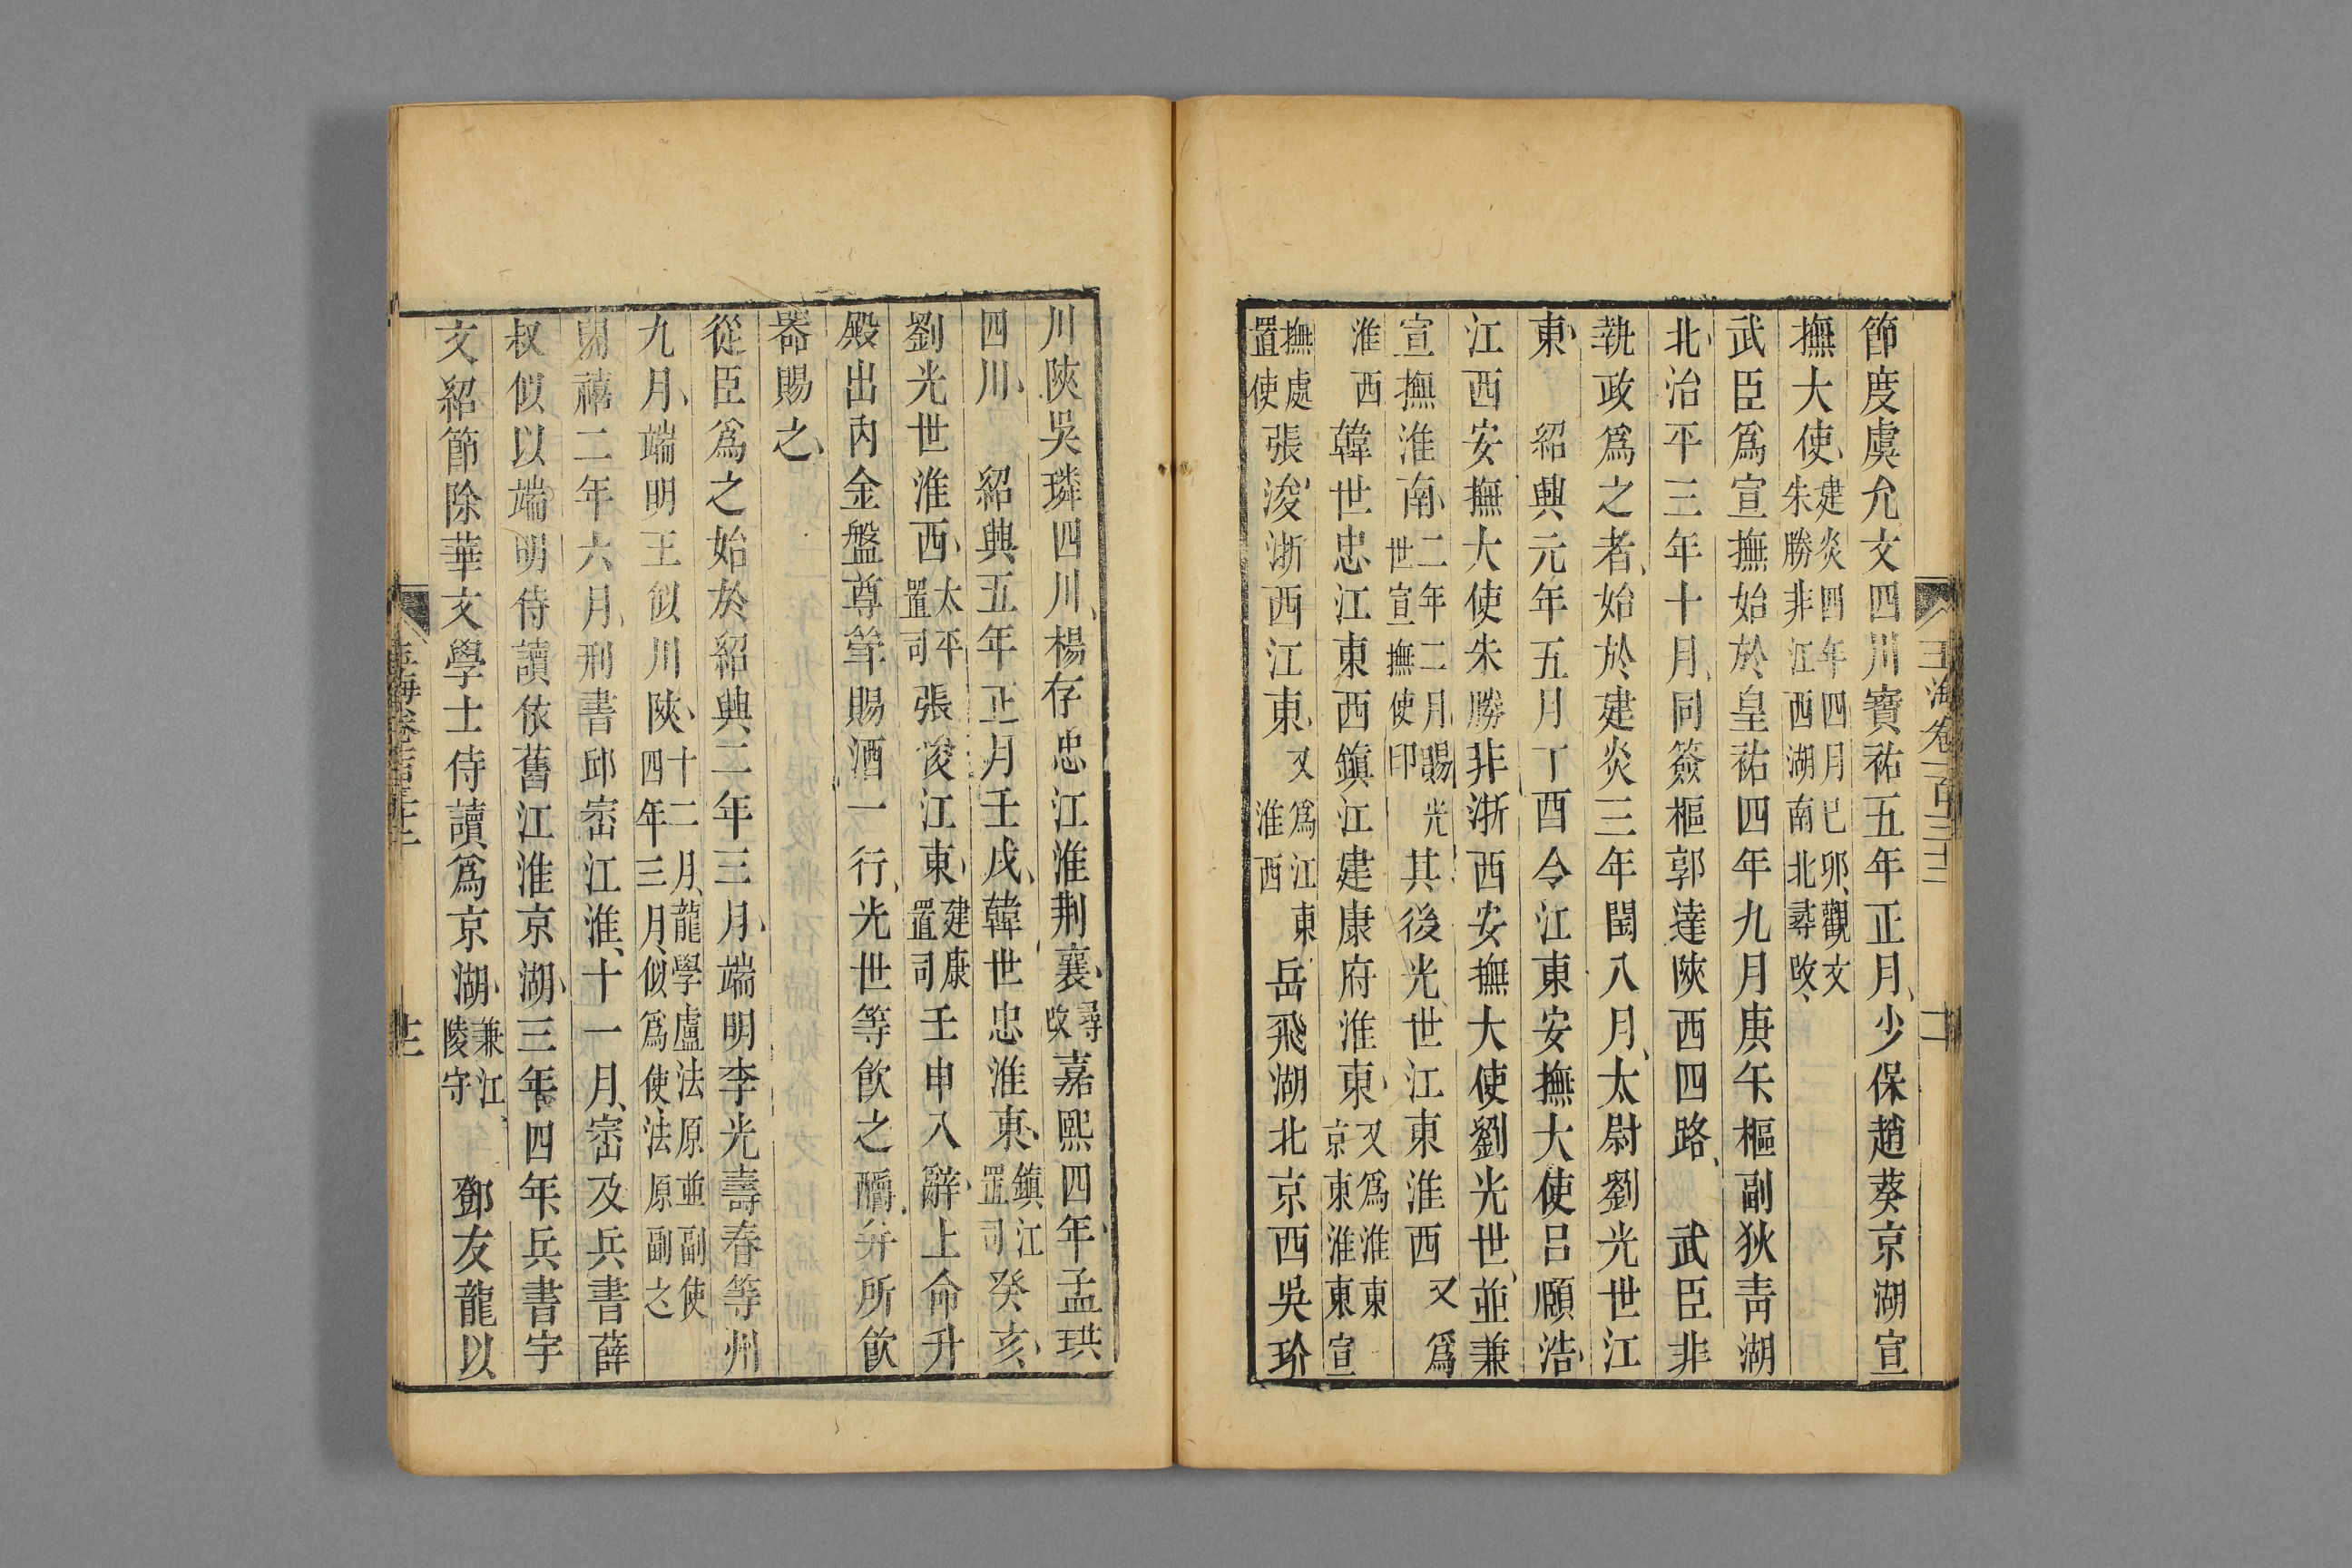 節度虞允文四川寶祐五年正月少保趙葵京湖宣
撫大使建炎四年四月已卯觀文朱勝非江西湖南北尋改
武臣爲宣撫始於皇祐四年九月庚午樞副狄青湖
北治平三年十月同簽樞郭逵陝西四路 武臣非
執政爲之者始於建炎三年閏八月太尉劉光世江
東 紹興元年五月丁酉令江東安撫大使呂頤浩
江西安撫大使朱勝非浙西安撫大使劉光世並兼
宣撫淮南二年二月賜光世宣撫使印其後光世江東淮西又爲
淮西韓世忠江東西鎮江建康府淮東又爲淮東京東淮東宣
撫處置使張浚浙西江東又爲江東淮西岳飛湖北京西吳玠
玉海卷一百三十二 二
川陝吳璘四川楊存忠江淮荆襄尋改嘉熙四年孟珙
四川 紹興五年正月壬戌韓世忠淮東鎮江置司癸亥
劉光世淮西太平置司張俊江東建康置司壬申入辭上命升
殿出內金盤尊斝賜酒一行光世等飲之釂并所飲
器賜之
從臣爲之始於紹興二年三月端明李光壽春等州
九月端明王似川陝十二月龍學盧法原並副使四年三月似爲使法原副之
開禧二年六月刑書邱崈江淮十一月崈及兵書薛
叔似以端明侍讀依舊江淮京湖三年四年兵書宇
文紹節除華文學士侍讀爲京湖兼江陵守 鄧友龍以